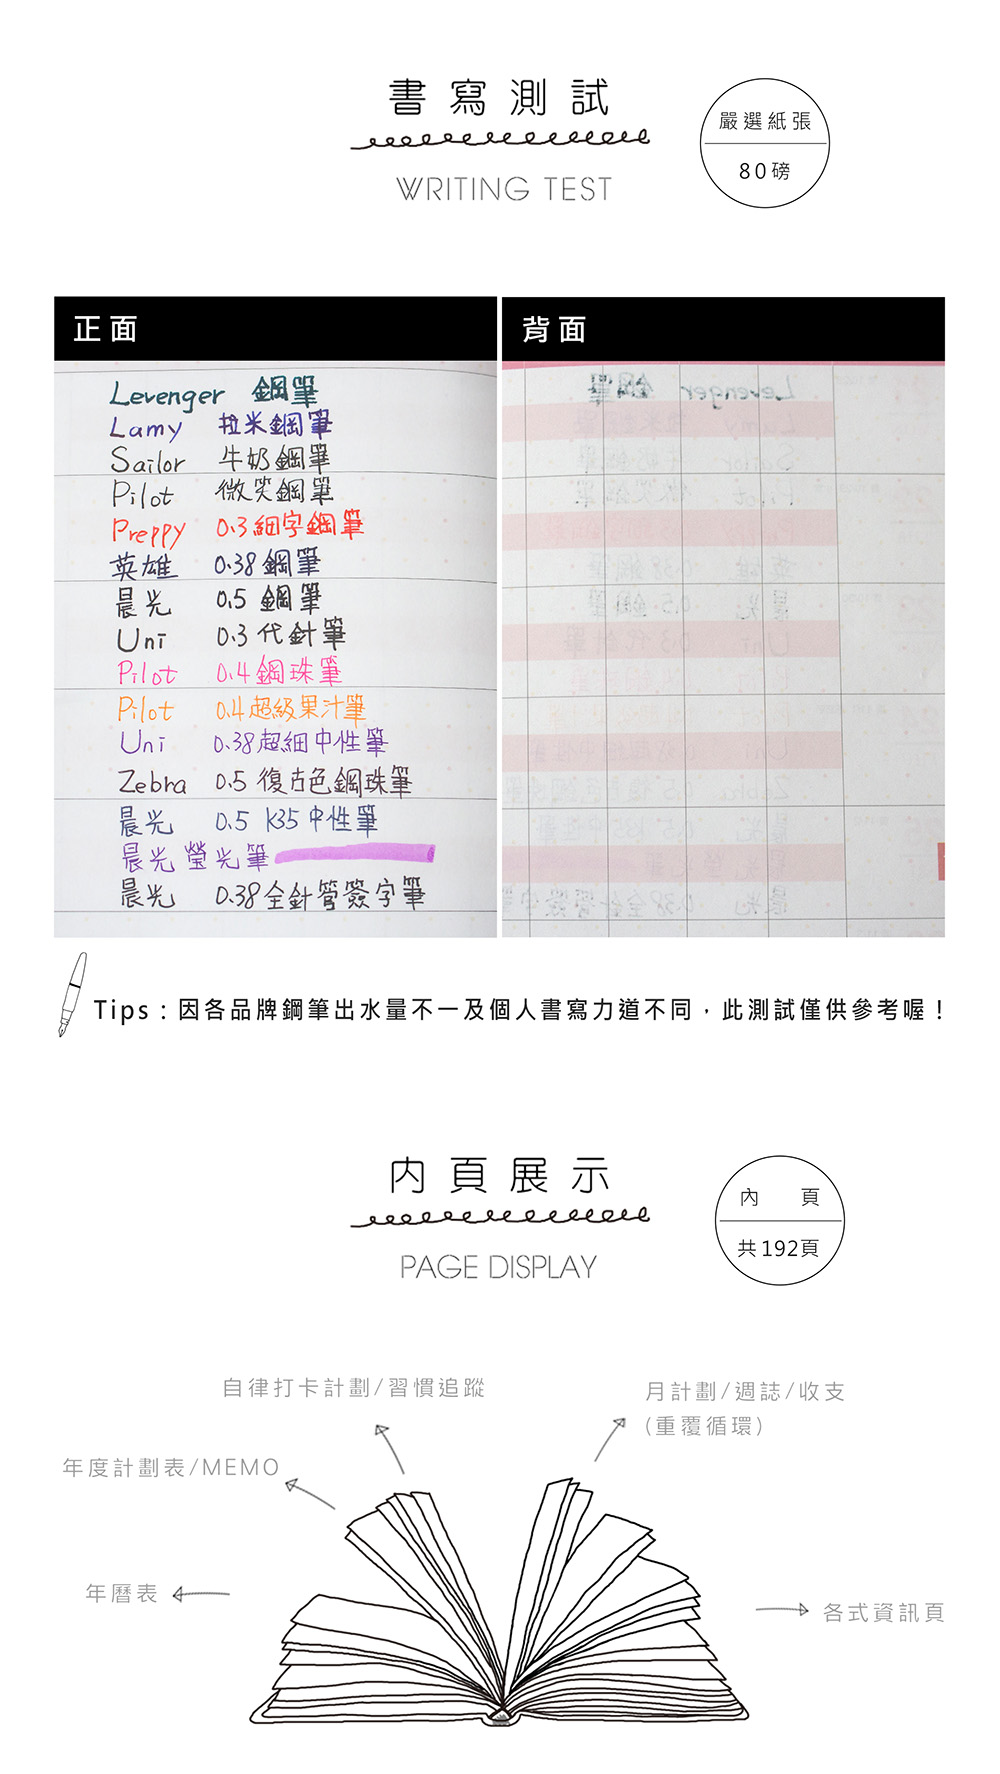 書寫測試
WRITING TEST
嚴選紙張
80磅
正面
背面
Levenger 鋼筆
Lamy 拉米鋼筆
Sailor 牛奶鋼筆
Pilot 微笑鋼筆
Preppy 0.3細字鋼筆
英雄 0.38鋼筆
晨光 0.5 鋼筆
Uni 0.3代針筆
Pilot 0.4鋼珠筆
Pilot 0.4超級果汁筆
Uni 0.38超細中性筆
Zebra 0.5復古色鋼珠筆
晨光 0.5 K35中性筆
晨光 螢光筆
晨光 0.38全針管簽字筆
Tips：因各品牌鋼筆出水量不一及個人書寫力道不同，此測試僅供參考喔！
內頁展示
PAGE DISPLAY
內頁
共192頁
自律打卡計劃/習慣追蹤
月計劃/週誌/收支
(重覆循環)
年度計劃表/MEMO
年曆表
各式資訊頁